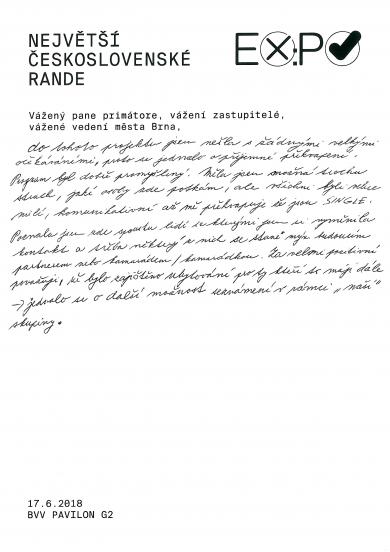 NEJVĚTŠÍ
ČESKOSLOVENSKÉ
RANDE
EX:PO
Vážený pane primátore, vážení zastupitelé,
vážené vedení města Brna,
do tohoto projektu jsem nešla s žádnými velkými
očekáváními, proto se jednalo o příjemné překvapení.
Program byl dobře promyšlený. Měla jsem možná trochu
strach, jaké osoby zde potkám, ale všichni byli velice
milí, komunikativní až mě překvapuje že jsou SINGLE.
Poznala jsem zde spoustu lidí se kterými jsem si vyměnila
kontakt a třeba některý z nich se stane mým budoucím
partnerem nebo kamarádem/kamarádkou. Za velmi pozitivní
považuji, že bylo zajištěno ubytování pro ty kteří to mají dále
→ jednalo se o další možnost seznámení v rámci "naší"
skupiny.
17.6.2018
BVV PAVILON G2